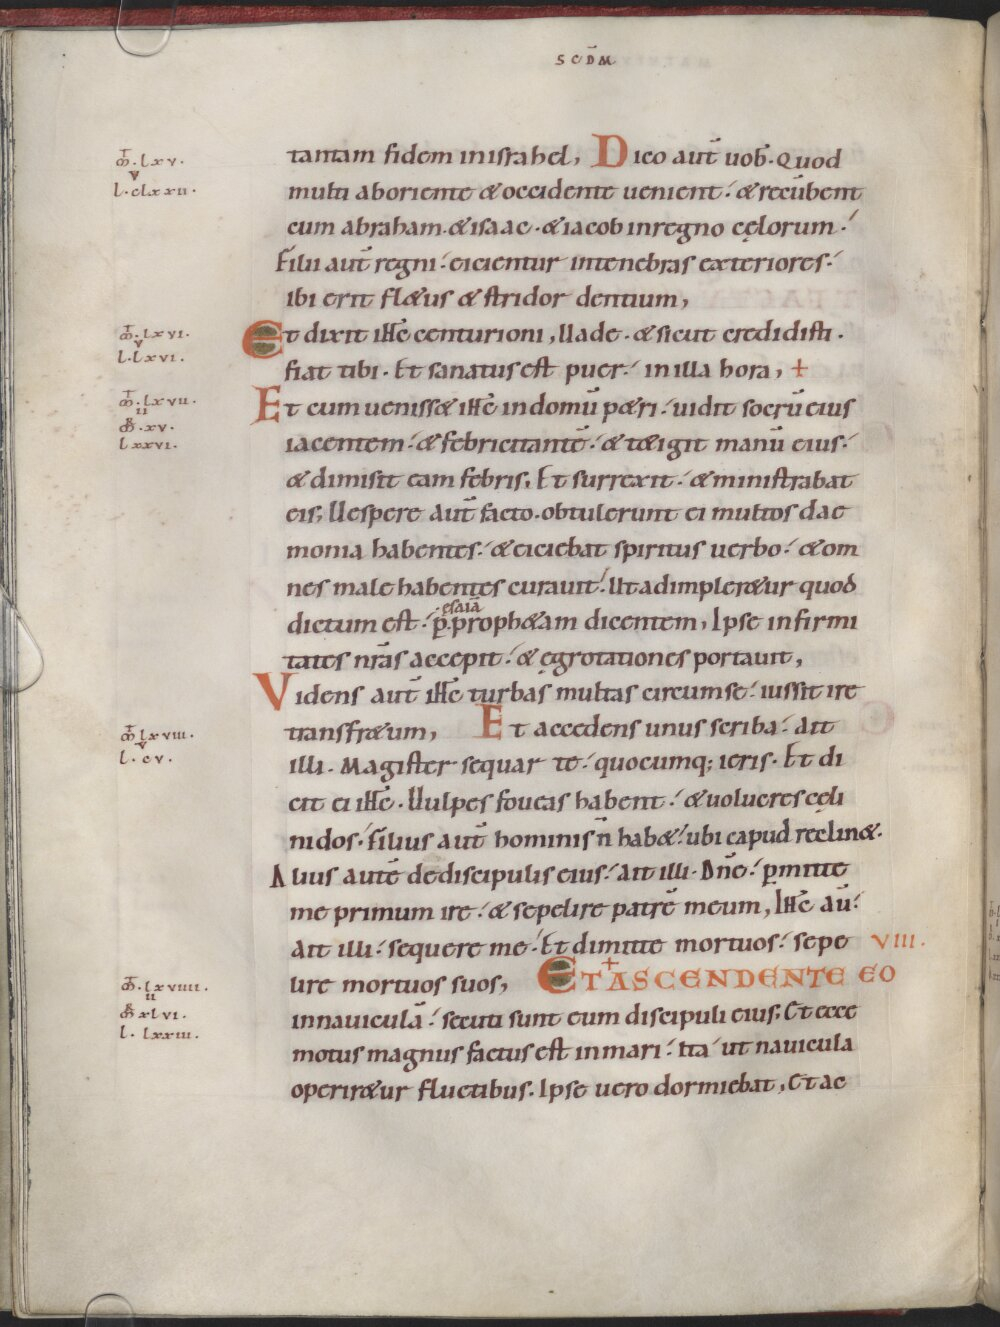 SCDM̄
tantam fidem inisrahel, Dico aut̄ uob̄. Quod
m̄t. lxv.
v
l. clxxii.
multi aboriente & occidente uenient: & recūbent
cum abraham. & isaac. & iacob inregno cęlorum.
Filii aut̄ regni. eicientur intenebras exteriores.
ibi erit fl&us & stridor dentium,
m̄t. lxvi.
v
l. lxvi.
Et dixit ihc̄ centurioni, Uade. & sicut credidisti.
fiat tibi. Et sanatus est puer. in illa hora, +
m̄t. lxvii.
ii
m̄r. xv.
lxxvi.
Et cum ueniss& ihc̄ indomū p&ri. uidit socrū eius
iacentem. & febricitantē. & t&igit manū eius.
& dimisit eam febris. Et surrexit. & ministrabat
eis; Uespere aut̄ facto. obtulerunt ei multos dae
monia habentes. & eiciebat spiritus uerbo. & om
nes male habentes curauit. Ut adimpler&ur quod
dictum est. p̄ esaiā proph&am dicentem, Ipse infirmi
tates nr̄as accepit. & ęgrotationes portauit,
Videns aut̄ ihc̄ turbas multas circumse. iussit ire
transfr&um, Et accedens unus scriba. ait
m̄t. lxviii.
v
l. cv.
illi. Magister sequar te. quocumq; ieris. Et di
cit ei ihc̄. Uulpes foueas habent. & uolucres cęli
nidos. filius aut̄ hominis n̄ hab&. ubi capud reclin&.
Alius autē dediscipulis eius. ait illi. Dn̄e. p̄mitte
me primum ire. & sepelire patrē meum, Ihc̄ aū.
ait illi. sequere me. Et dimitte mortuos. sepe
VIII.
lire mortuos suos, ET ASCENDENTE EO
m̄t. lxviiii.
ii
m̄r xlvi.
l. lxxiii.
innauiculā. secuti sunt eum discipuli eius; Et ecce
motus magnus factus est inmari. ita ut nauicula
operir&ur fluctibus. Ipse uero dormiebat, Et ac